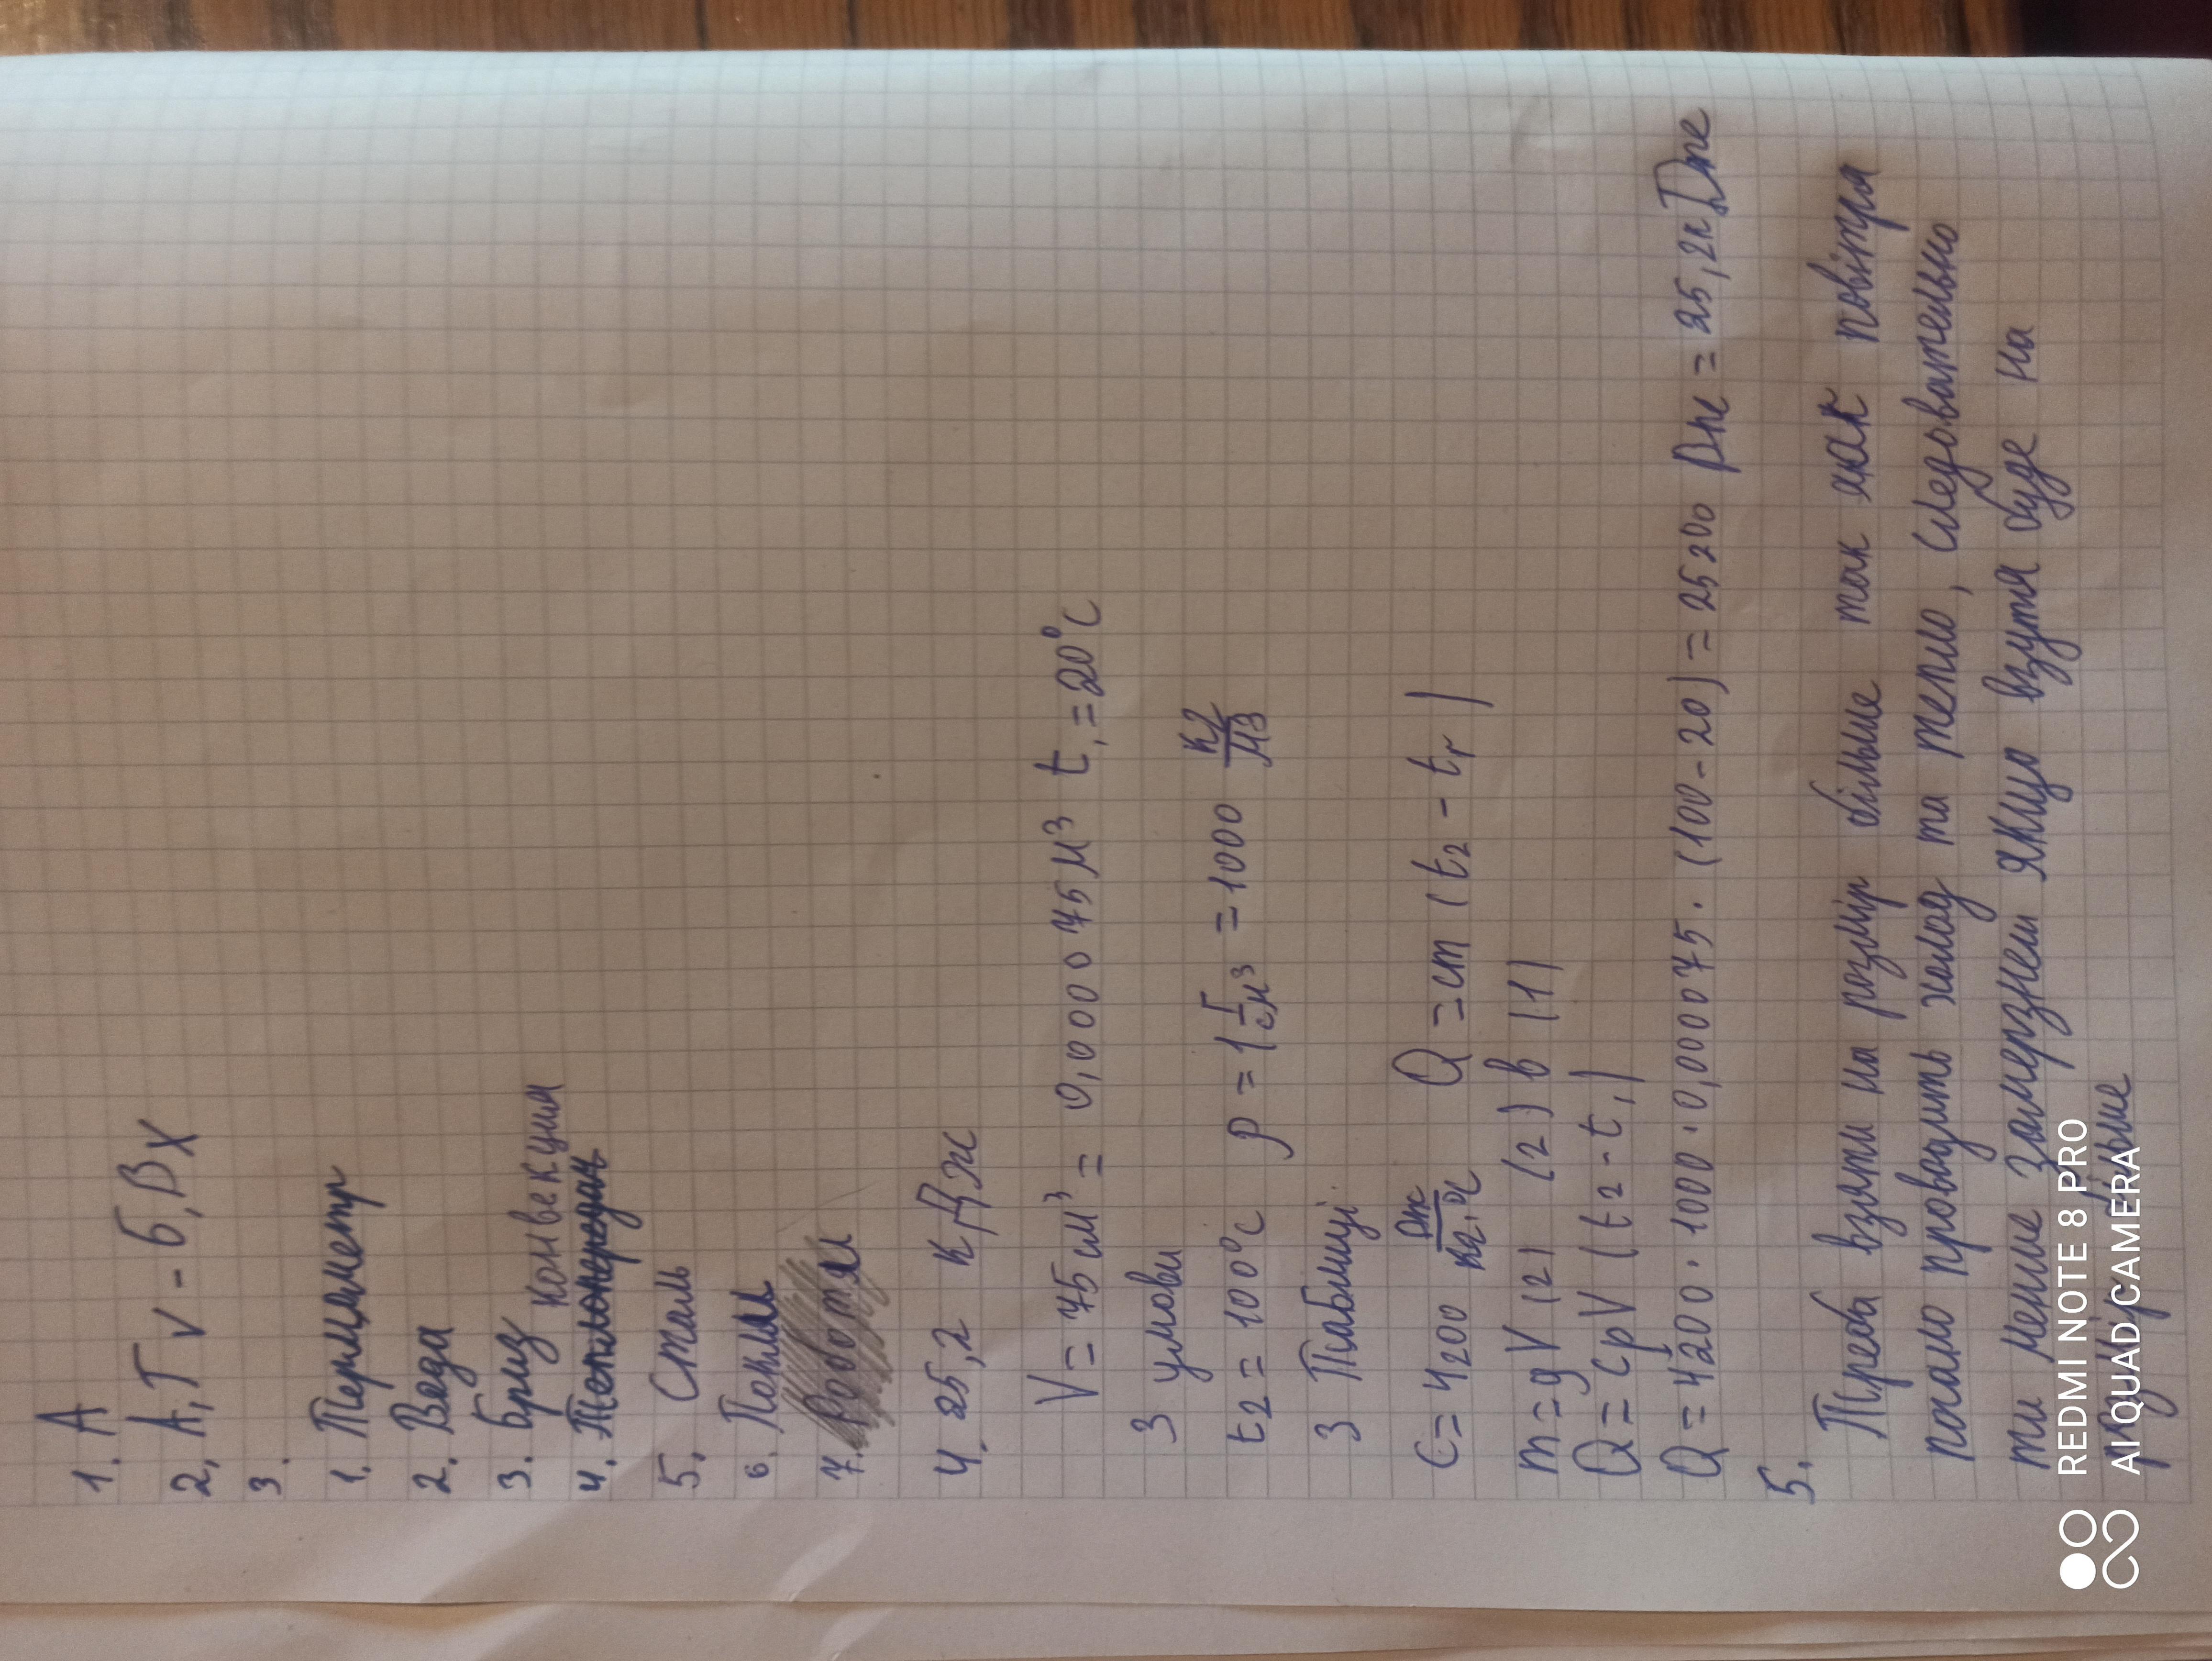 1. А
2, А,Г v - Б,В х
3.
1. Термометр
2. Вода
3. Бриз
конвекция
4. Теплопередач
5. Сталь
6. Паливо
7. Роботи
4. 25,2 кДж
V = 75 см³ = 0,000075 м³ t₁ = 20°C
З умови
t₂ = 100°C ρ = 1 г/см³ = 1000 кг/м³
З Таблиці
c = 4200 Дж/кг.°C Q = cm (t₂ - t₁)
m = ρV (2) (2) в (1)
Q = cρV (t₂ - t₁)
Q = 4200 · 1000 · 0,000075 · (100 - 20) = 25200 Дж = 25,2 кДж
5.
Треба взяти на розмір більше так как повітря
погано проводить холод та тепло, следовательно
ти менше замерзнеш якщо взутя буде на
розмір більше
REDMI NOTE 8 PRO
AI QUAD CAMERA